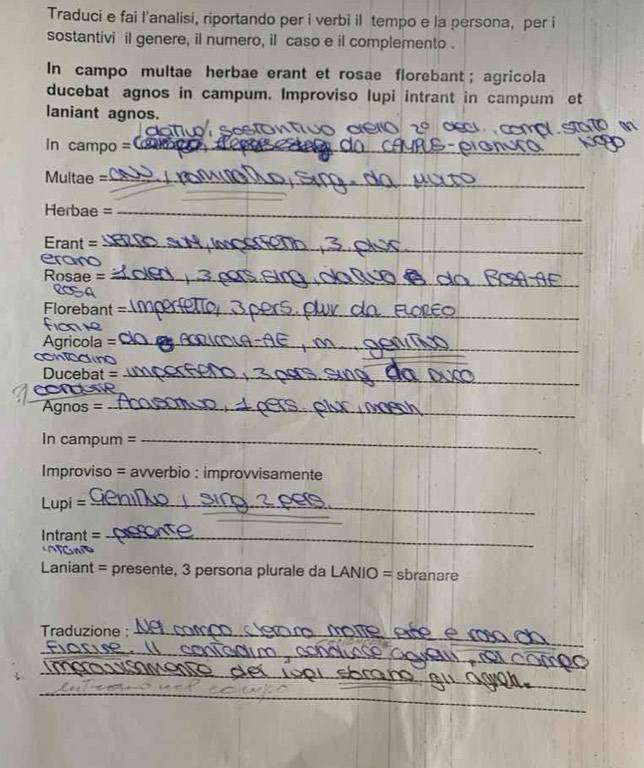 Traduci e fai l'analisi, riportando per i verbi il tempo e la persona, per i
sostantivi il genere, il numero, il caso e il complemento .
In campo multae herbae erant et rosae florebant ; agricola
ducebat agnos in campum. Improviso lupi intrant in campum et
laniant agnos.
dativo, sostantivo della 2° decl. compl. stato in
In campo = da CAMPUS-pianura luogo
Multae = sing. da
Herbae =
Erant = VERBO SUM, imperfetto, 3 plur
erano
Rosae = 1 decl, 3 pers. sing, dativo da ROSA-AE
rosa
Florebant = Imperfetto, 3 pers. plur da FLOREO
fiorire
Agricola = da AGRICOLA-AE, m, genitivo
contadino
Ducebat = imperfetto, 3 pers. sing da DUCO
? condurre
Agnos = Accusativo, 1 pers. plur, masch
In campum =
Improviso = avverbio : improvvisamente
Lupi = Genitivo, sing 2 pers
Intrant = presente
Laniant = presente, 3 persona plurale da LANIO = sbranare
Traduzione : Nel campo c'erano molte erbe e rosa da
fiorire. Il contadino, condusse agnelli, nel campo
improvvisamente dei lupi sbrano gli agnelli.
entrano nel campo